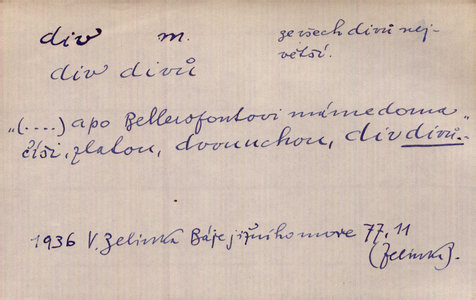 div m. ze všech divů nej-
větší.
div divů
„(....) a po Bellerofontovi máme doma
číši, zlatou, dvouuchou, div divů.“
1936 V. Zelinka Báje jižního moře 77, 11
(Zelinka).